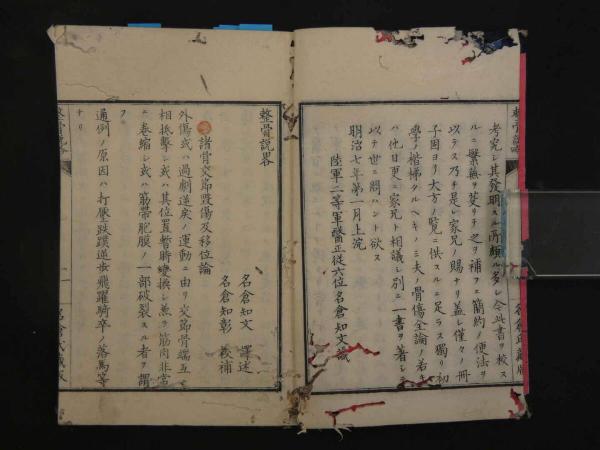 考究シ其發明スル所頗ル多シ今此書ヲ校ス
ルニ繁蕪ヲ芟リ之ヲ補フニ簡約ノ便法ヲ
以テス乃チ是レ家兄ノ賜ナリ蓋シ僅々ノ冊
子固ヨリ大方ノ覧ニ供スルニ足ラス獨リ初
學ノ楷梯タルヘキノミ夫ノ骨傷全論ノ若キ
ハ他日更ニ家兄ト相議シ別ニ一書ヲ著シ
以テ世ニ問ハント欲ス
明治七年第一月上浣
陸軍二等軍醫正從六位名倉知文識
整骨說畧
名倉知文 譯述
名倉知彰 校補
諸骨交節毀傷及移位論
外傷或ハ過劇逆戻ノ運動ニ由リ交節骨端互ニ
相抵擊シ或ハ其位置暫時變換シ兼テ筋肉非常
ニ卷縮シ或ハ筋帶肥膜ノ一部破裂スル者ヲ謂
フ
通例ノ原因ハ打壓跌蹼逆歩飛躍騎卒ノ落馬等
ナリ
整骨說畧
一
名倉氏藏版